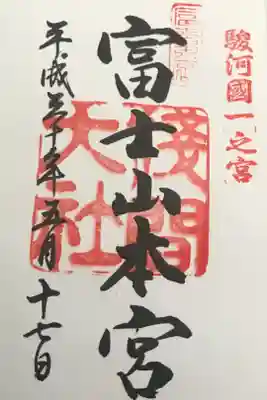 駿河國一之宮
富士山本宮
淺間大社
平成三十年五月十七日